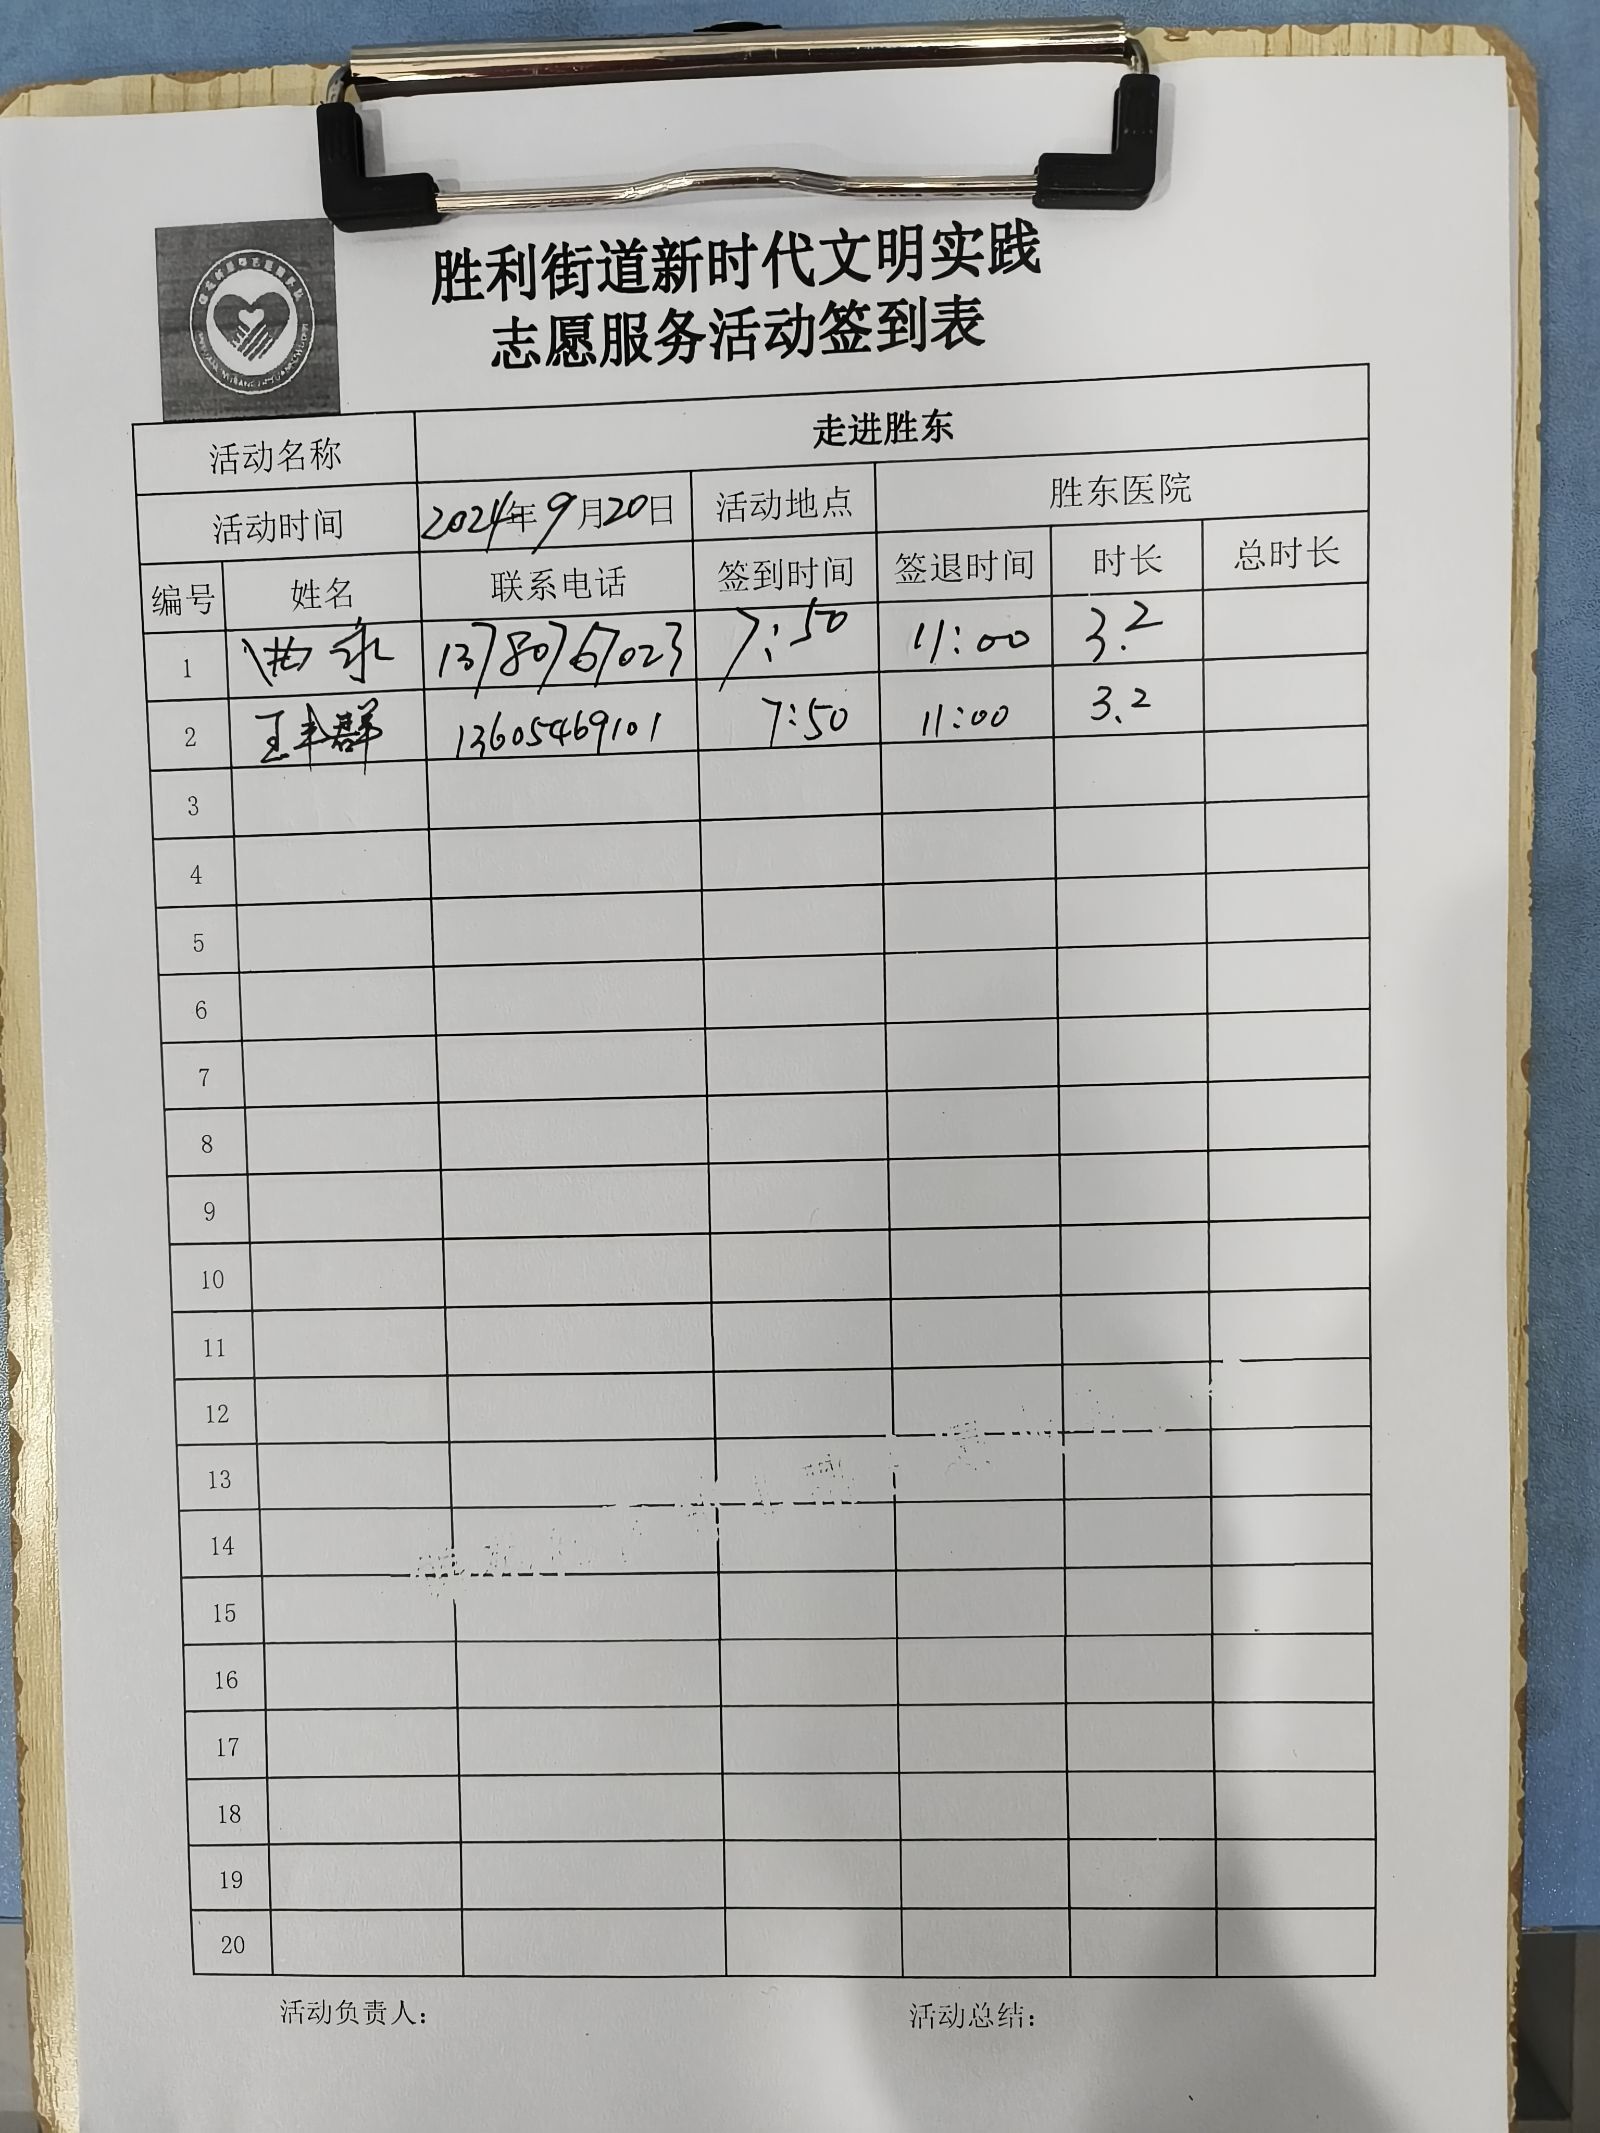 胜利街道新时代文明实践
志愿服务活动签到表
活动名称 走进胜东
活动时间 2024年9月20日 活动地点 胜东医院
编号 姓名 联系电话 签到时间 签退时间 时长 总时长
1 洪永 13780767023 7:50 11:00 3.2
2 王丰群 13605469101 7:50 11:00 3.2
3
4
5
6
7
8
9
10
11
12
13
14
15
16
17
18
19
20
活动负责人： 活动总结：